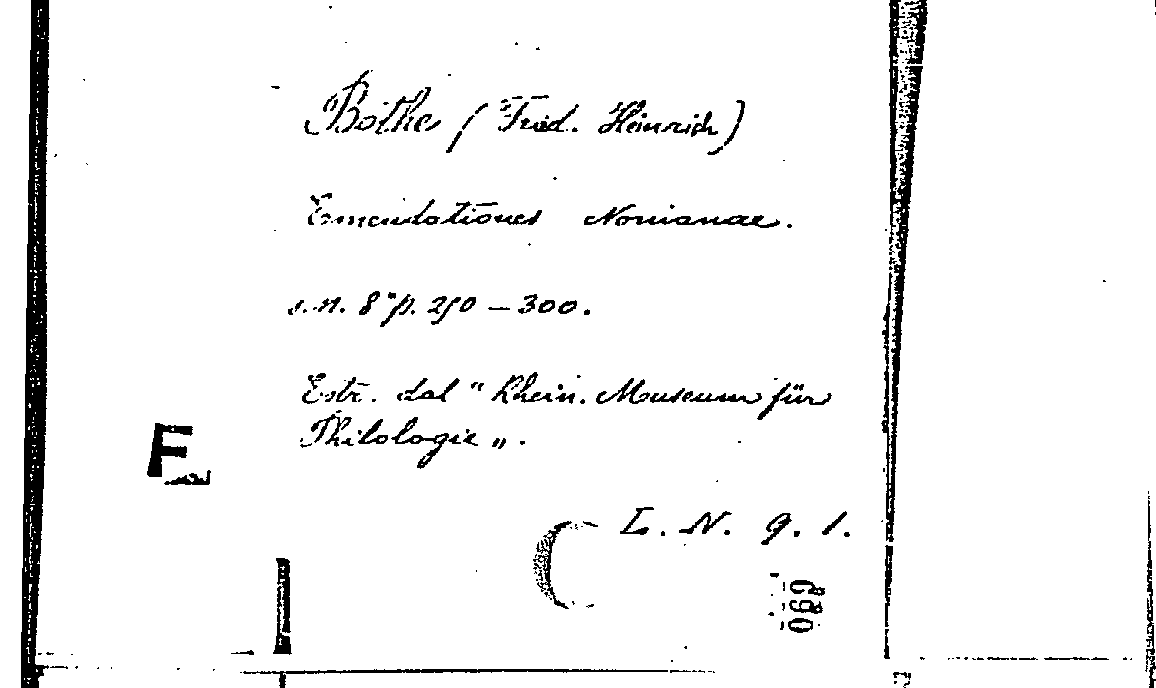 Bothe (Fried. Heinrich)
Emendationes Nonianae.
s.n. 8° p. 250 – 300.
Estr. dal "Rhein. Museum für
Philologie „.
F
L. N. 9. 1.
069